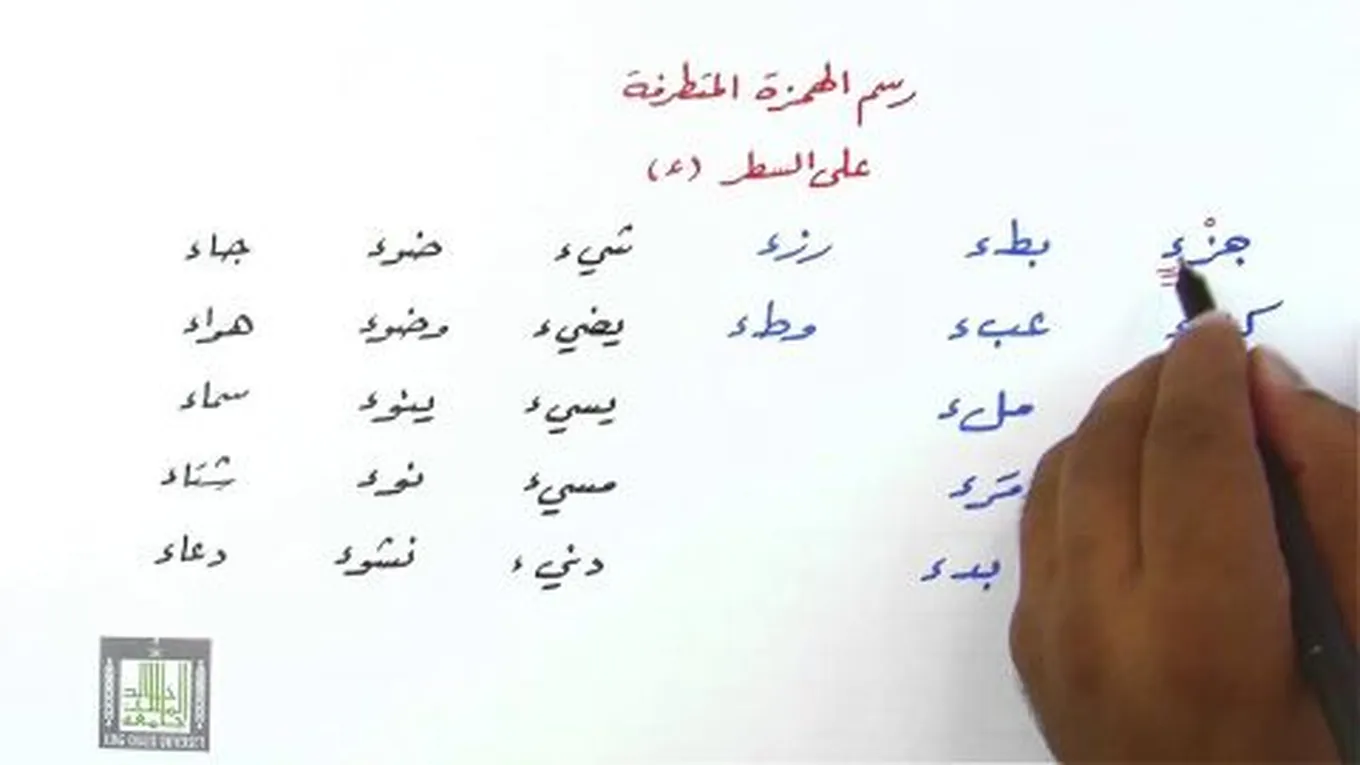 رسم الهمزة المتطرفة
على السطر (ء)
جزْء بطء رزء شيء ضوء جاء
عبء وطء يضيء وضوء هواء
ملء يسيء ينوء سماء
مَرء مسيء نوء شتاء
بدء دنيء نشوء دعاء
جامعة الملك خالد
KING KHALID UNIVERSITY